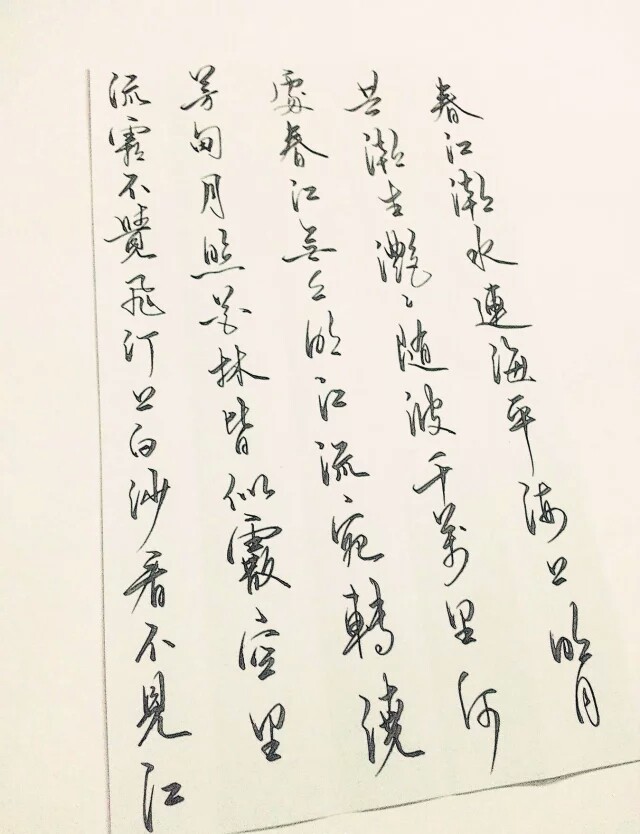 春江潮水連海平海上明月
共潮生灔〻随波千萬里何
處春江無月明江流宛轉繞
芳甸月照花林皆似霰空里
流霜不覺飛汀上白沙看不見江